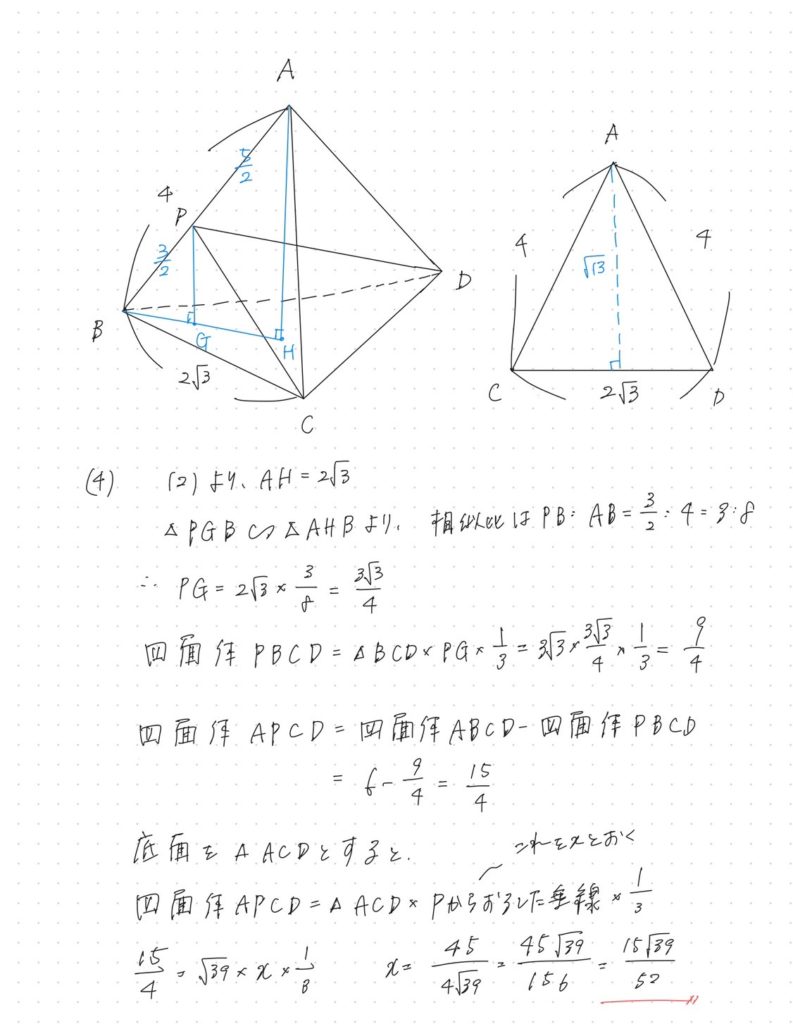 A
5/2
4
P
3/2
B
G
H
D
2√3
C
A
4
4
√13
C
2√3
D
(4) (2)より、AH=2√3
△PGB∽△AHBより、相似比はPB:AB=3/2:4=3:8
∴ PG=2√3×3/8=3√3/4
四面体PBCD=△BCD×PG×1/3=3√3×3√3/4×1/3=9/4
四面体APCD=四面体ABCD-四面体PBCD
=6-9/4=15/4
底面を△ACDとすると、
これをxとおく
四面体APCD=△ACD×Pからおろした垂線×1/3
15/4=√39×x×1/3 x=45/4√39=45√39/156=15√39/52